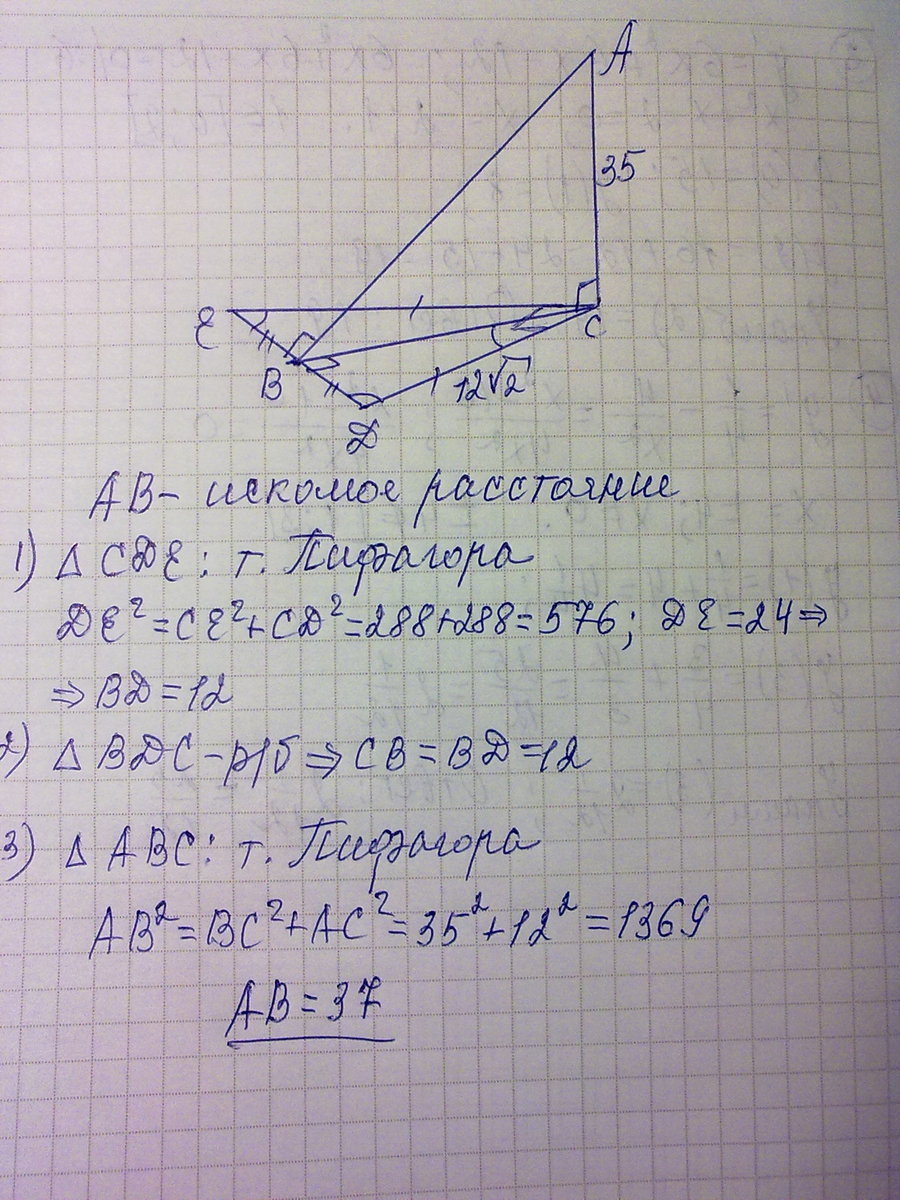 A
35
E
C
B
12√2
D
AB - искомое расстояние
1) Δ CDE: т. Пифагора
DE² = CE² + CD² = 288 + 288 = 576; DE = 24 ⇒
⇒ BD = 12
2) Δ BDC - р/б ⇒ CB = BD = 12
3) Δ ABC: т. Пифагора
AB² = BC² + AC² = 35² + 12² = 1369
AB = 37